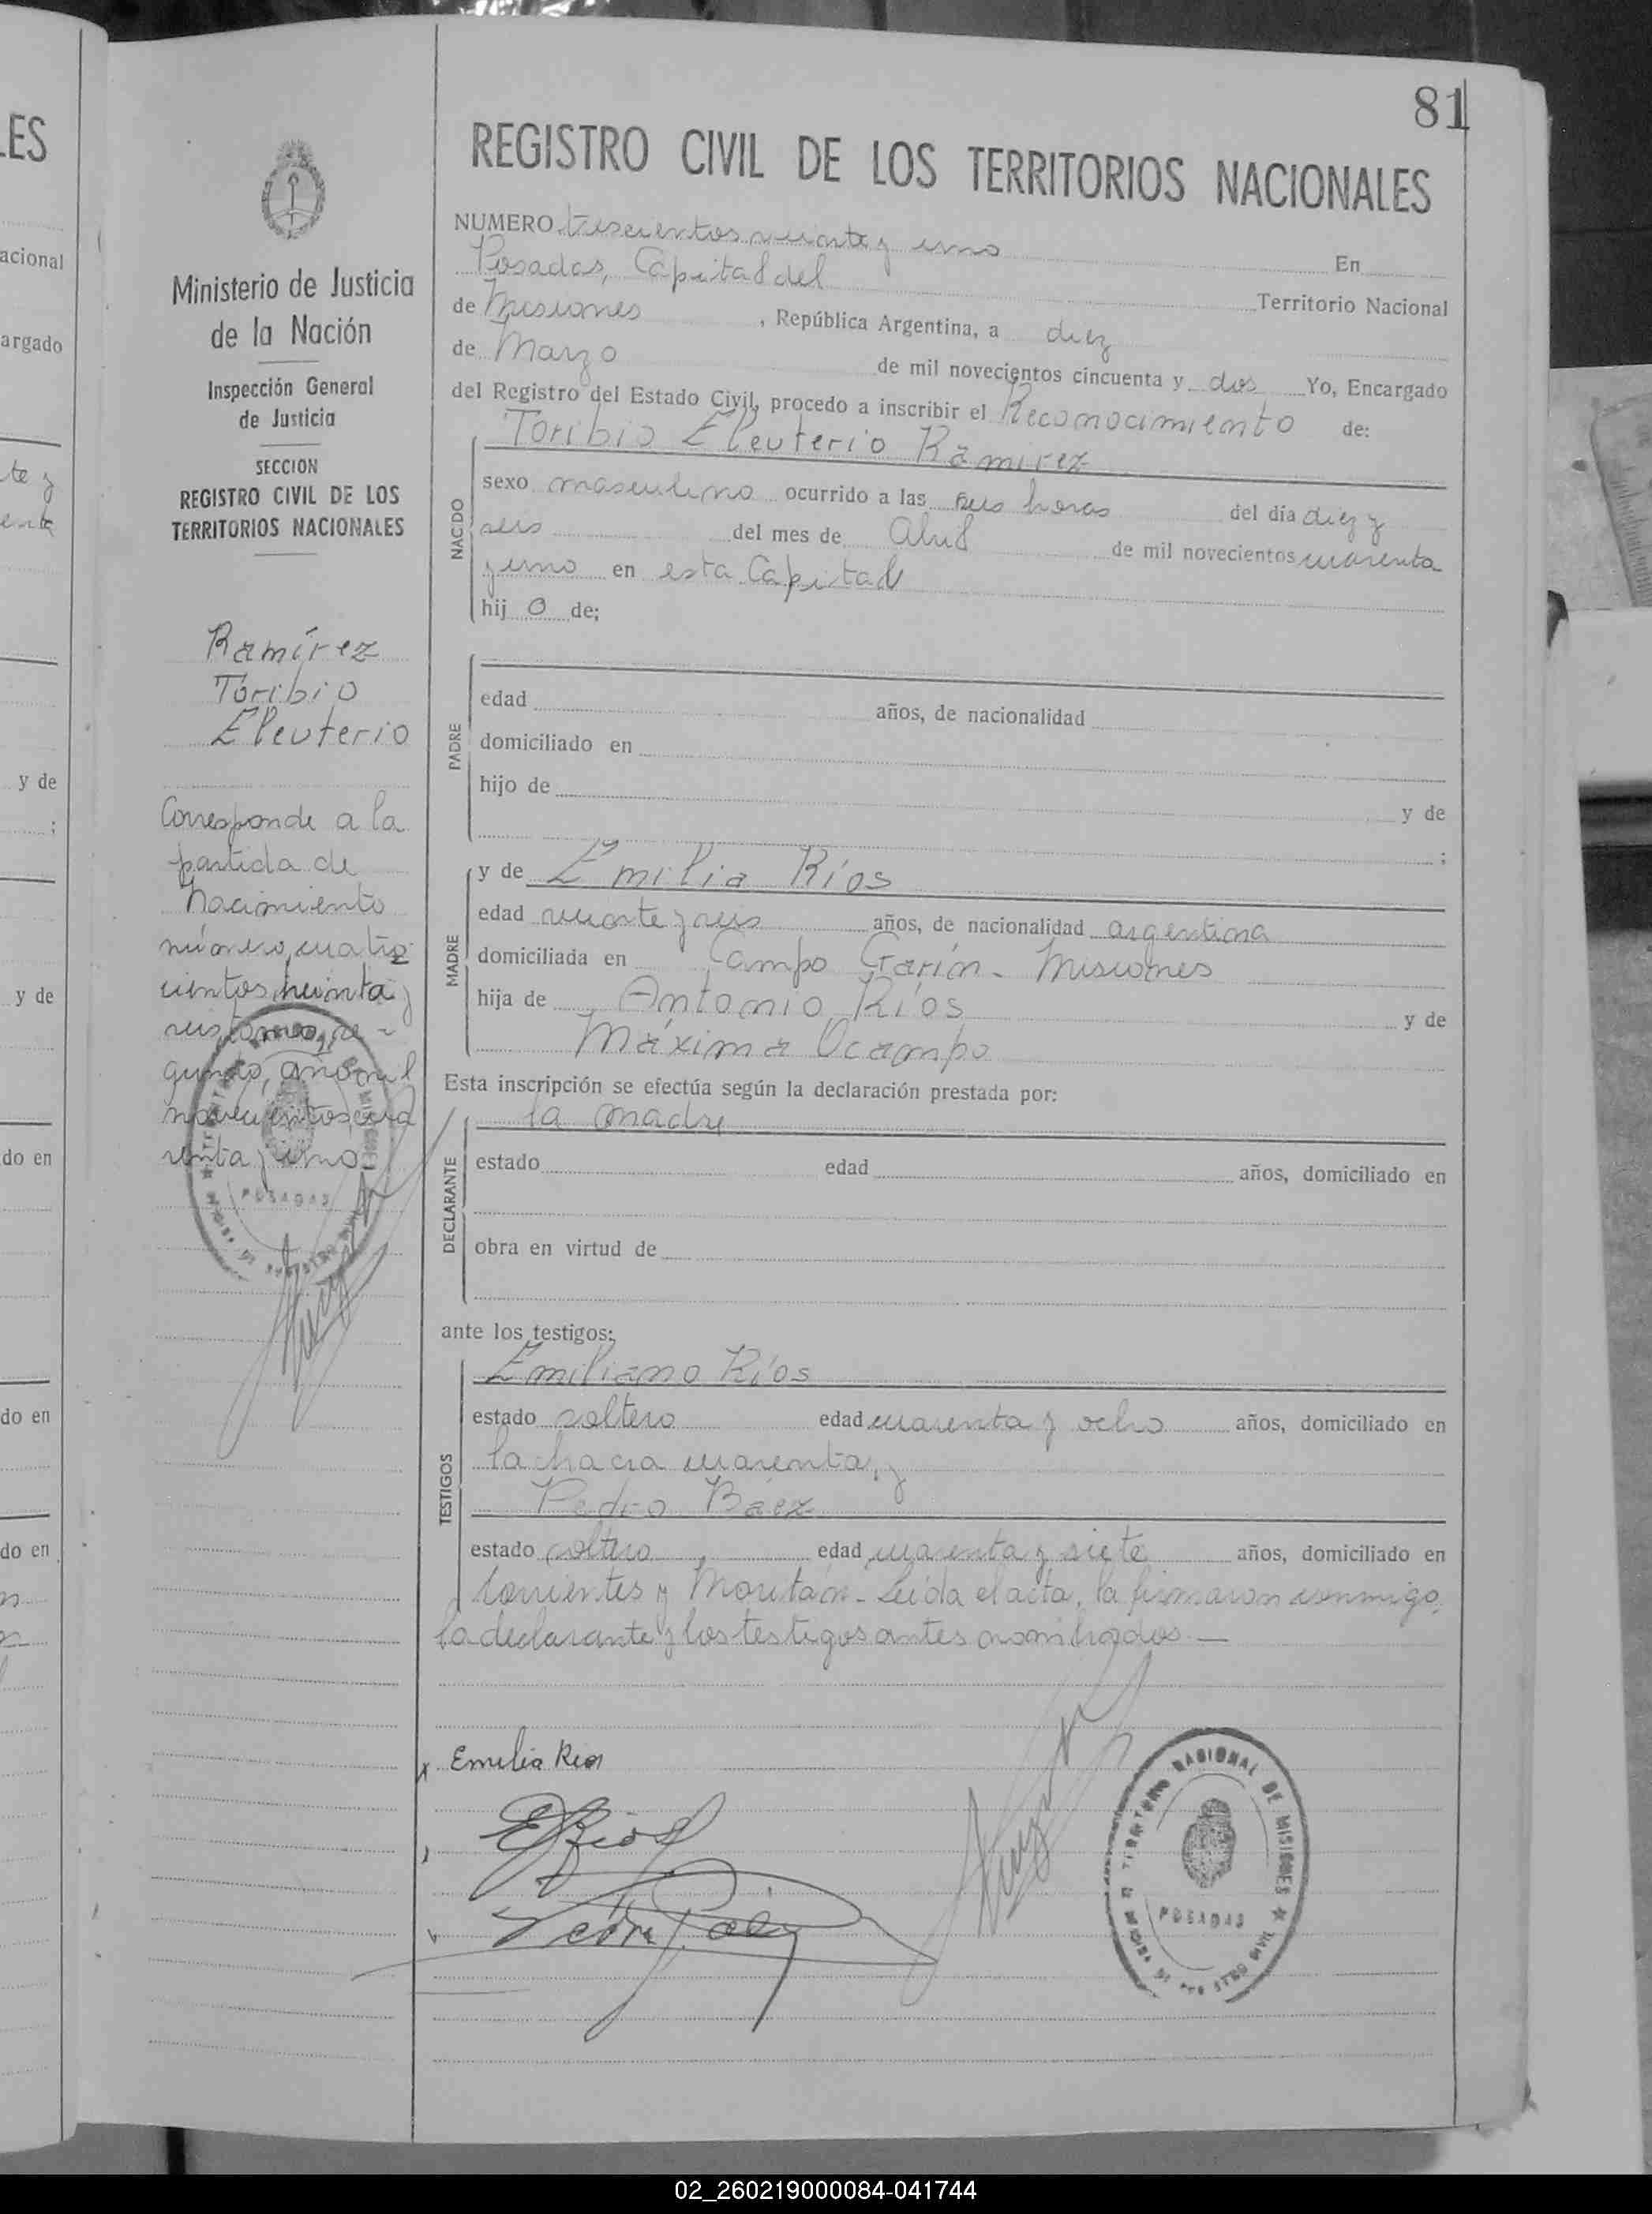 81
REGISTRO CIVIL DE LOS TERRITORIOS NACIONALES
NUMERO trescientos veinte y uno En
Posadas, Capital del Territorio Nacional
de Misiones, República Argentina, a diez
de Marzo de mil novecientos cincuenta y dos Yo, Encargado
del Registro del Estado Civil, procedo a inscribir el Reconocimiento de:
Toribio Eleuterio Ramirez
NACIDO
sexo masculino ocurrido a las seis horas del día diez y
seis del mes de Abril de mil novecientos cuarenta
y uno en esta Capital
hij o de;
PADRE
edad años, de nacionalidad
domiciliado en
hijo de y de
;
MADRE
y de Emilia Ríos
edad veinte y seis años, de nacionalidad argentina
domiciliada en Campo Garín - Misiones
hija de Antonio Ríos y de
Máxima Ocampo
Esta inscripción se efectúa según la declaración prestada por:
la madre
DECLARANTE
estado edad años, domiciliado en
obra en virtud de
ante los testigos:
TESTIGOS
Emiliano Ríos
estado soltero edad cuarenta y ocho años, domiciliado en
la chacra cuarenta, y
Pedro Báez
estado soltero edad cuarenta y siete años, domiciliado en
Corrientes y Moritán - Leída el acta, la firmaron conmigo,
la declarante y los testigos antes nombrados.—
Emilia Rios
E Rios
TERRITORIO NACIONAL DE MISIONES
POSADAS
Ministerio de Justicia
de la Nación
Inspección General
de Justicia
SECCION
REGISTRO CIVIL DE LOS
TERRITORIOS NACIONALES
Ramírez
Toribio
Eleuterio
Corresponde a la
partida de
Nacimiento
número, cuatro
cientos treinta y
seis, tomo, se-
gundo, año mil
novecientos cua
renta y uno
POSADAS
LES
acional
argado
te y
enta
y de
;
y de
do en
do en
do en
02_260219000084-041744